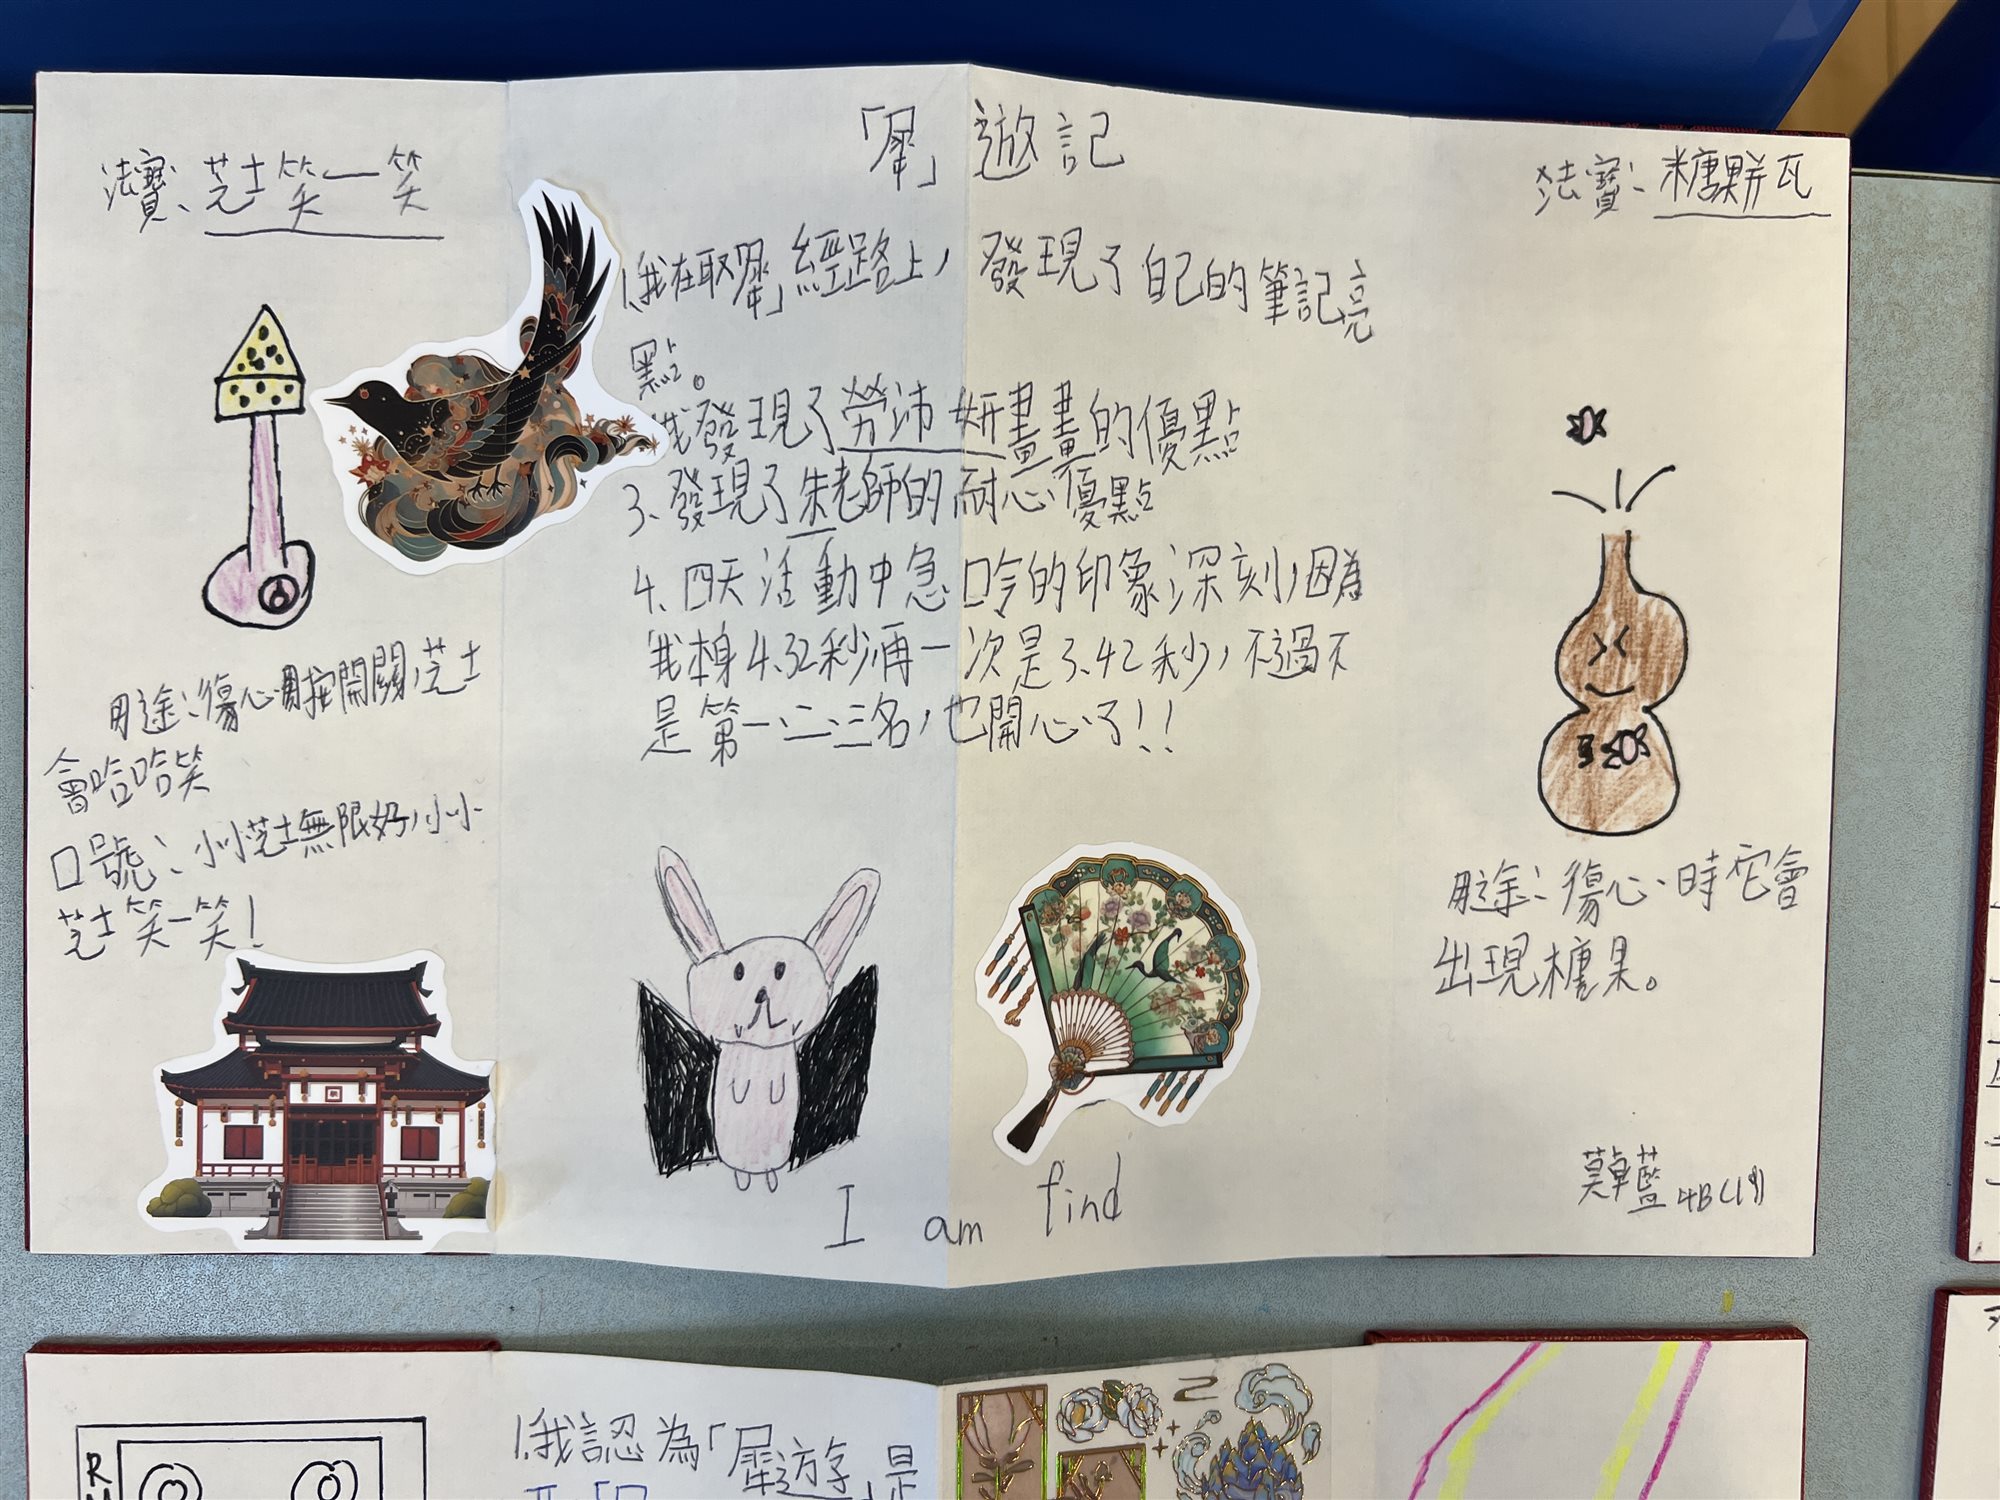 「犀」遊記
法寶:芝士笑一笑
用途:傷心用按開關,芝士
會哈哈笑
口號:小小芝士無限好,小小
芝士笑一笑!
1.我在取「犀」經路上,發現了自己的筆記亮
點。
我發現了勞沛妍畫畫的優點
3、發現了朱老師的耐心優點
4、四天活動中急口令的印象深刻,因為
我本身4.32秒再一次是3.42秒,不過不
是第一、二、三名,也開心了!!
I am find
法寶:糖果瓶瓦
用途:傷心時它會
出現糖果。
莫卓藍 4B(19)
1.我認為「犀遊」是